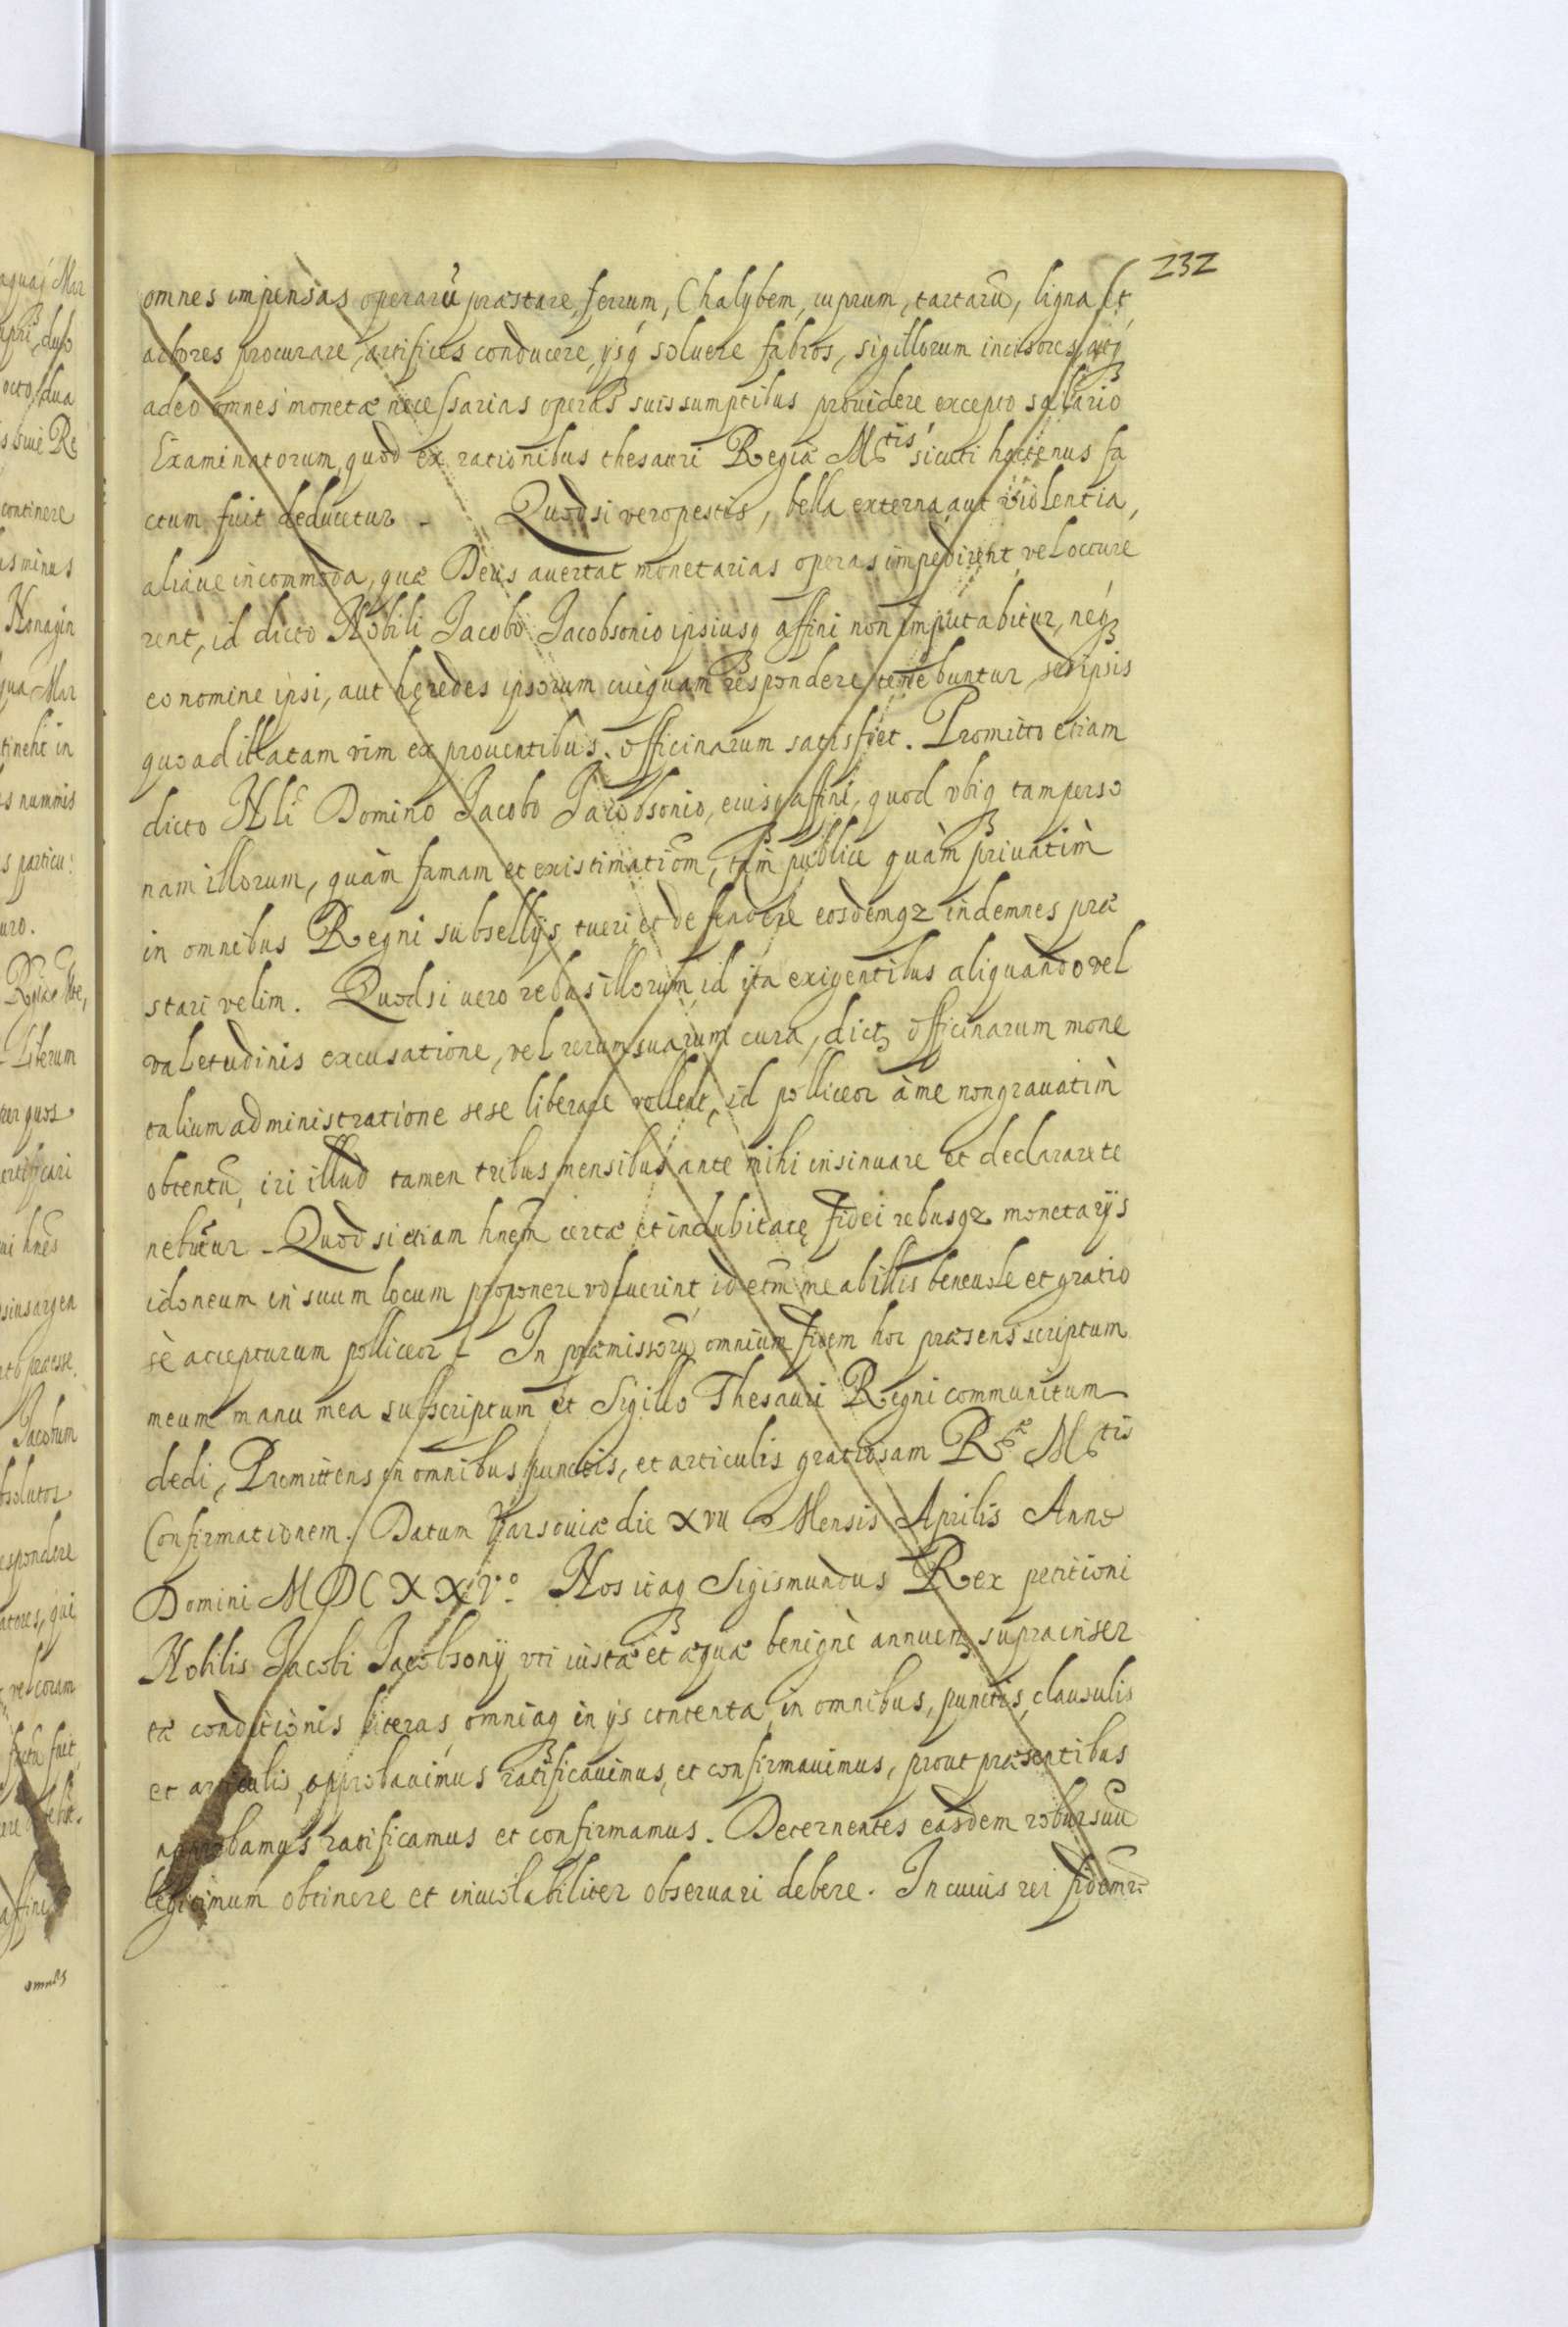 232
omnes impensas operarũ præstare, ferrum, Chalybem, cuprum, tartarũ, ligna et
arbores procurare, artifices conducere, ysq soluere fabros, sigillorum incisores, atq
adeo omnes monetæ necessarias operas suis sumptibus prouidere excepto salario
Examinatorum, quod ex rationibus thesauri Regiæ Mtis sicuti hactenus fa
ctum fuit deducetur. Quodsi vero pestis, bella externa, aut violentia,
aliaue incommoda, quæ Deus auertat monetarias operas impedirent, vel occure
rent, id dicto Nobili Jacobo Jacobsonio ipsiusq affini non imputabitur, neq
eo nomine ipsi, aut hęredes ipsorum cuiquam respondere tenebuntur, sed ipsis
quoad illatam vim ex prouentibus officinarum satisfiet. Promitto etiam
dicto Nli Domino Jacobo Jacobsonio, eiusq affini, quod vbiq tam perso
nam illorum, quàm famam et existimatiom, tam publice quàm priuatim
in omnibus Regni subsellys tueri et defendere eosdemqz indemnes præ
stari velim. Quodsi uero rebus illorum id ita exigentibus aliquando vel
valetudinis excusatione, vel rerum suarum cura, dict officinarum mone
talium administratione sese liberare vellent, id polliceor à me non grauatim
obtentũ iri illud tamen tribus mensibus ante mihi insinuare et declarare te
nebũtur. Quod si etiam hnem certæ et indubitatę fidei rebusqz monetarijs
idoneum in suum locum proponere voluerint id etm me ab illis beneuole et gratio
sè accepturum polliceor. In præmissorũ omnium fidem hoc præsens scriptum
meum manu mea subscriptum et Sigillo Thesauri Regni communitum
dedi, Promittens in omnibus punctis, et articulis gratiosam Ræ Mtis
Confirmationem. Datum Varsouiæ die XVII Mensis Aprilis Anno
Domini MDCXXIVo. Nos itaq Sigismundus Rex petitioni
Nobilis Jacobi Jacobsonij vti iustæ et æquæ benignè annuen supra inser
tæ conditionis literas, omniaq in ys contenta, in omnibus, punctis, clausulis
et articulis, approbauimus ratificauimus, et confirmauimus, prout præsentibus
approbamus ratificamus et confirmamus. Decernentes easdem robur suũ
legitimum obtinere et inuiolabiliter obseruari debere. In cuius rei fidem